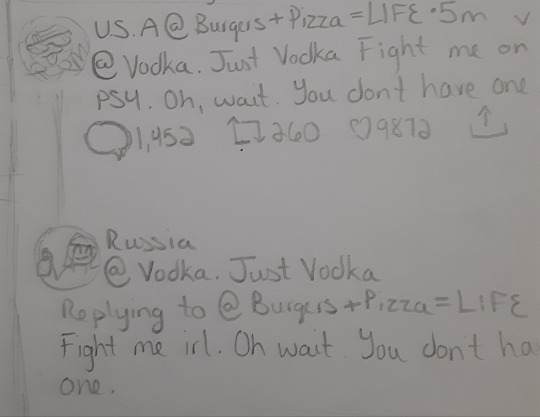 U.S.A @ Burgers + Pizza = LIFE • 5m v
@ Vodka. Just Vodka Fight me on
PS4. Oh, wait. You dont have one
1,452 260 9872
Russia
@ Vodka. Just Vodka
Replying to @ Burgers + Pizza = LIFE
Fight me irl. Oh wait. You don't ha
one.